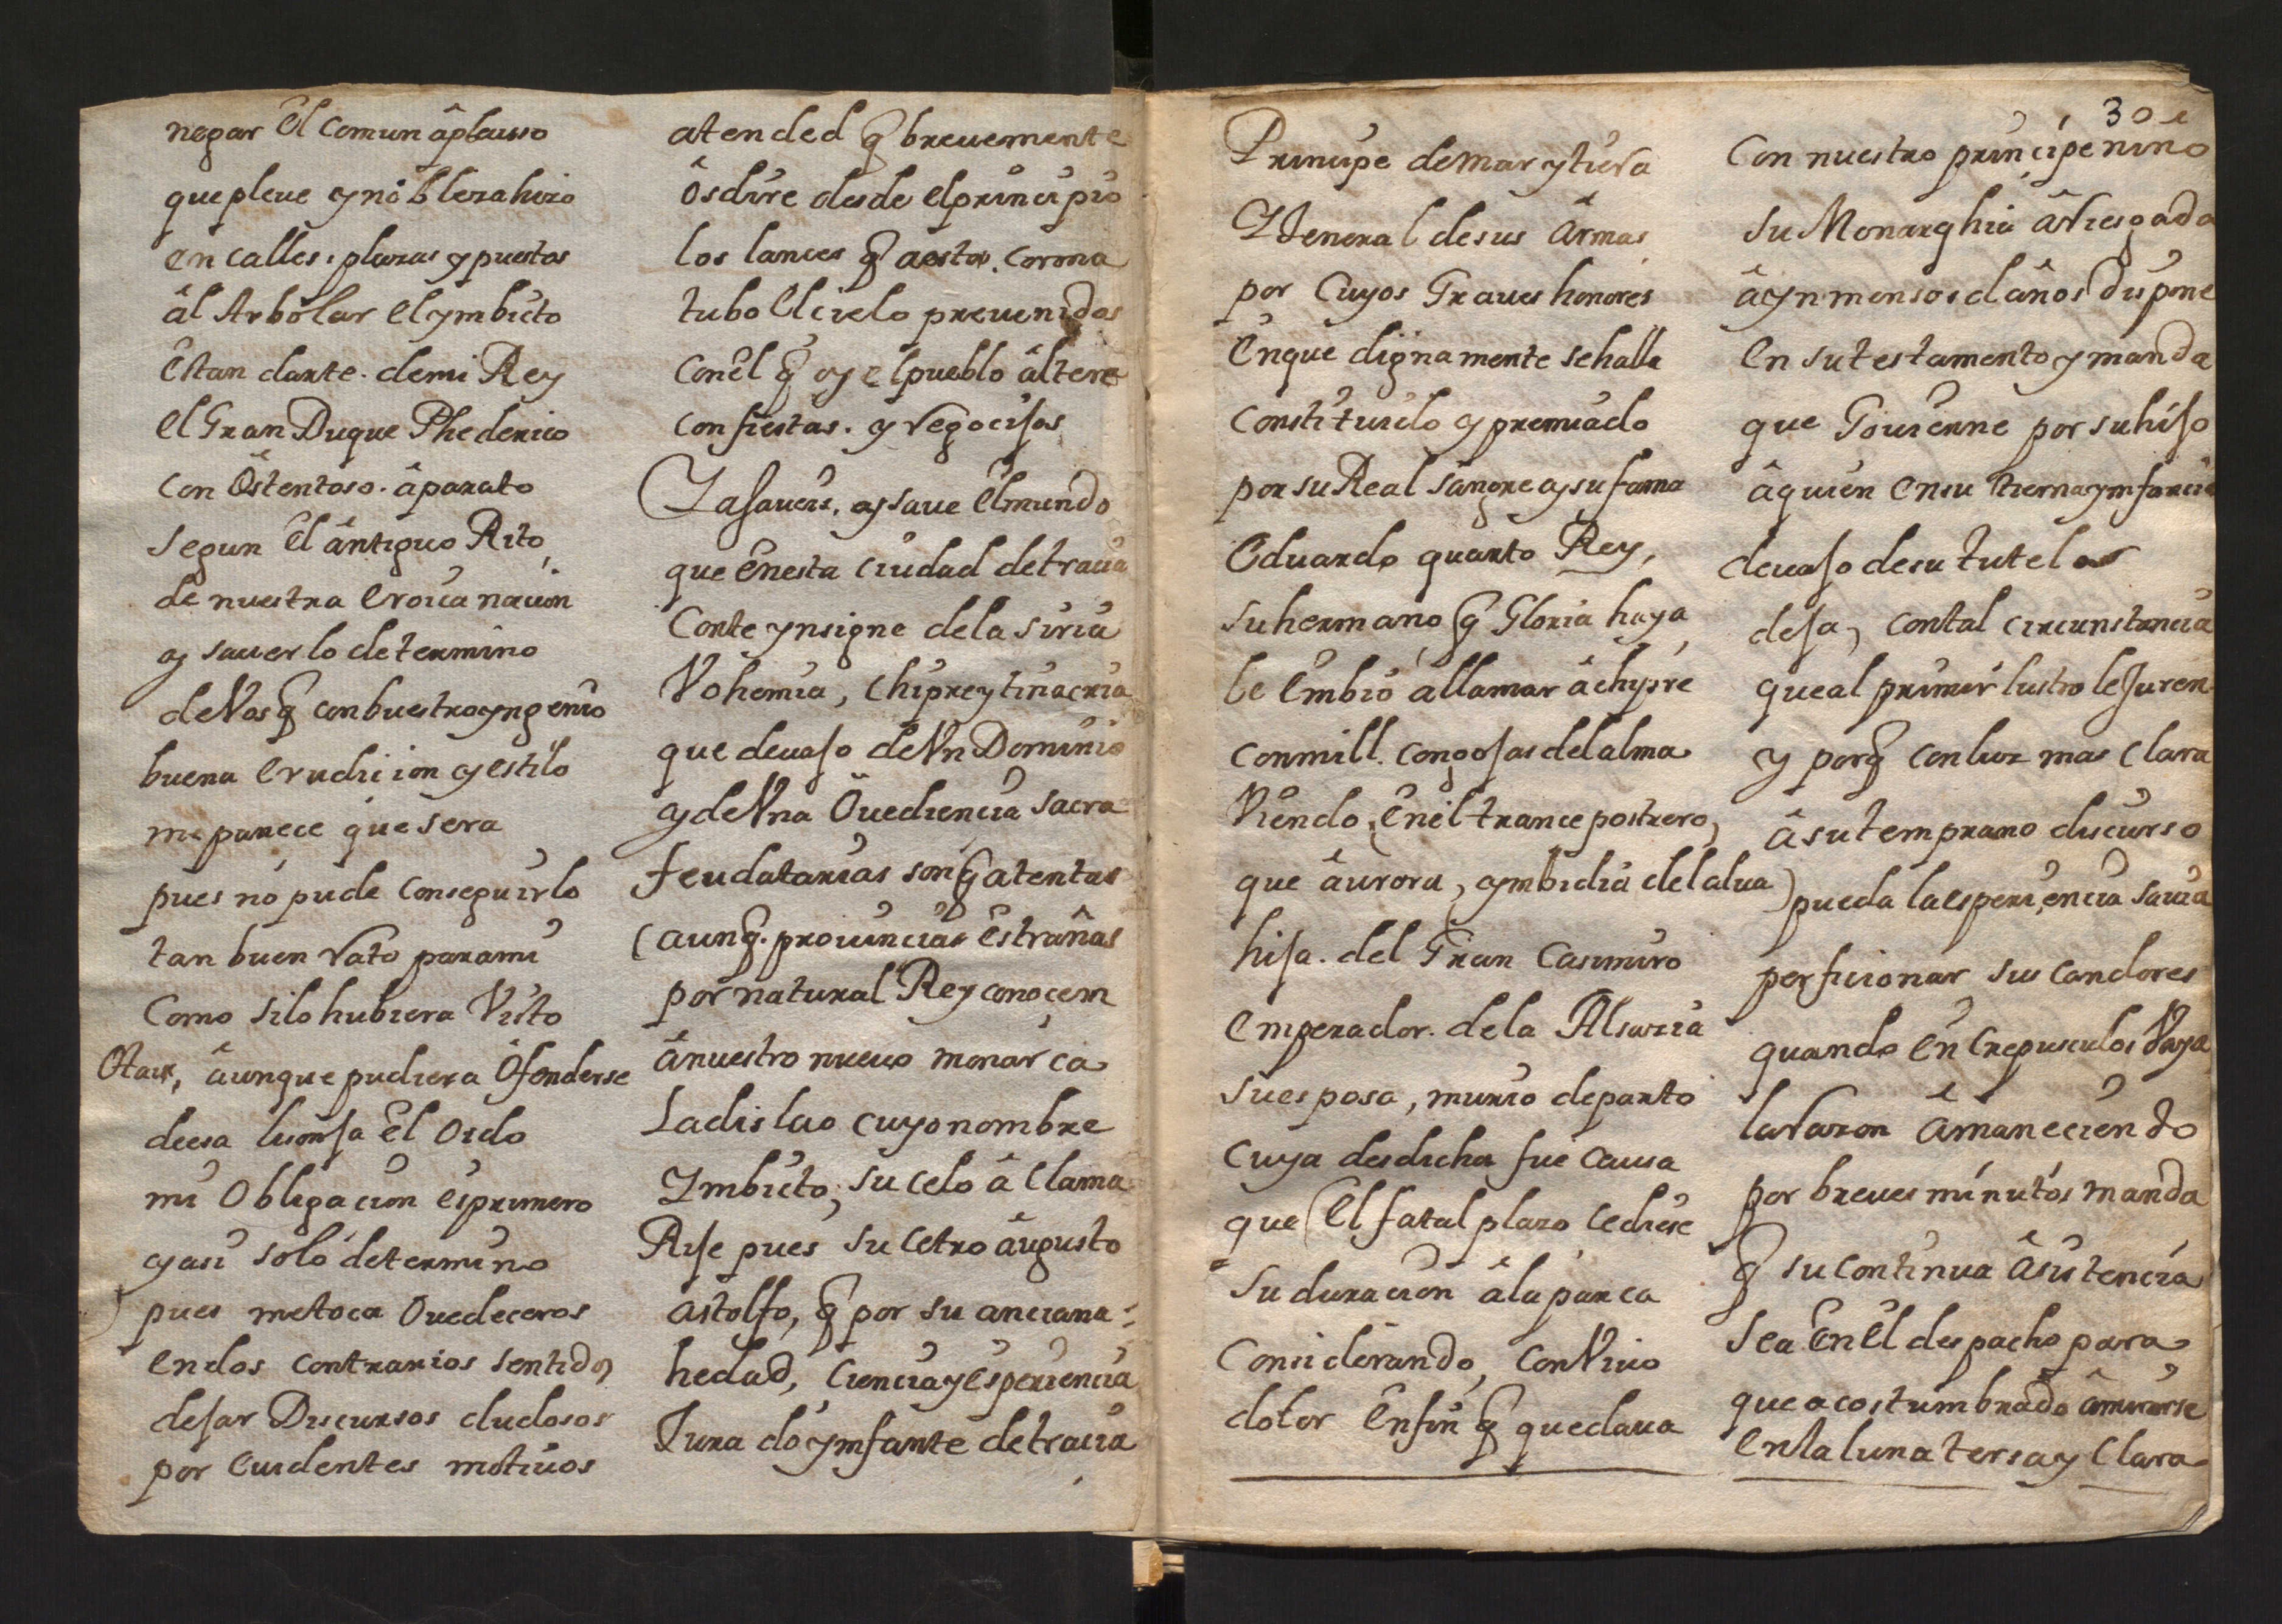 negar El comun âplausso
que pleue y nobleza hizo
en calles, plazas y puestos
âl Arbolar El ymbicto
Estandarte. de mi Rey
el Gran Duque Phederico
con Ostentoso. âparato
segun El ântiguo Rito
de nuestra eroica nacion
y sauerlo determino
de Vos q̃ con buestro yngenio
buena erudicion y estilo
me parece que sera
pues no pude conseguirlo
tan buen rato para mi
como si lo hubiera Visto
Otau, âunque pudiera Ofenderse
de esa lisonja El Oido
mi Obligacion es primero
y asi solo determino
pues me toca Ouedeceros
en dos contrarios sentidos
dejar Discursos dudosos
por euidentes motiuos
atended q̃ breuemente
Os dire desde el principio
los lances q̃ a esta. corona
tubo El cielo preuenidos
con el q̃ oy el pueblo âltere
con fiestas. y regocijos
Ya saueis, y saue El mundo
que en esta ciudad de tracia
Corte ynsigne de la siria
Vohemia, chipre y tinacria
que deuajo de Vn Dominio
y de Vna Ouediencia sacra
feudatarias son q̃ atentas
(aunq̃. prouincias Estrañas
por natural Rey conocem
â nuestro nueuo monarca
Ladislao cuyo nombre
Ymbicto, su celo âclama
Rije pues su cetro âugusto
astolfo, q̃ por su anciana
hedad, ciencia y esperiencia
Jurado ymfante de tracia
301
Principe de mar y tierra
General de sus Armas
por Cuyos Graues honores
En que dignamente se halla
constituido y premiado
por su Real sangre y su fama
Eduardo quarto Rey,
su hermano, q̃ Gloria haya
le Embio allamar â chipre
con mill. congojas del alma
Viendo, En el trance postrero,
que âurora, ymbidia del alua)
hija. del Gran Casimiro
emperador. de la Alsazia
su esposa, murio de parto
cuya desdicha fue Causa
que El fatal plazo cediese
su duracion â la parca
considerando, con Viuo
dolor En fin q̃ quedaua
Con nuestro principe nino
su Monarghia ârriesgada
â ynmensos daños Dispone
en su testamento y manda
que Gouierne por su hijo
â quien en su tierna ymfancia
deuajo de su tutela
deja, con tal circunstancia
que al primer lustro le Juren
y porq̃ con luz mas Clara
â su temprano discurso
pueda la esperiencia sauia
perficionar sus candores
quando En Crepusculos Vaya
la razon âmaneciendo
por breues minutos manda
q̃ su continua âsistencia
sea En El despacho para
que acostumbrado âmirarse
en la luna tersa y Clara